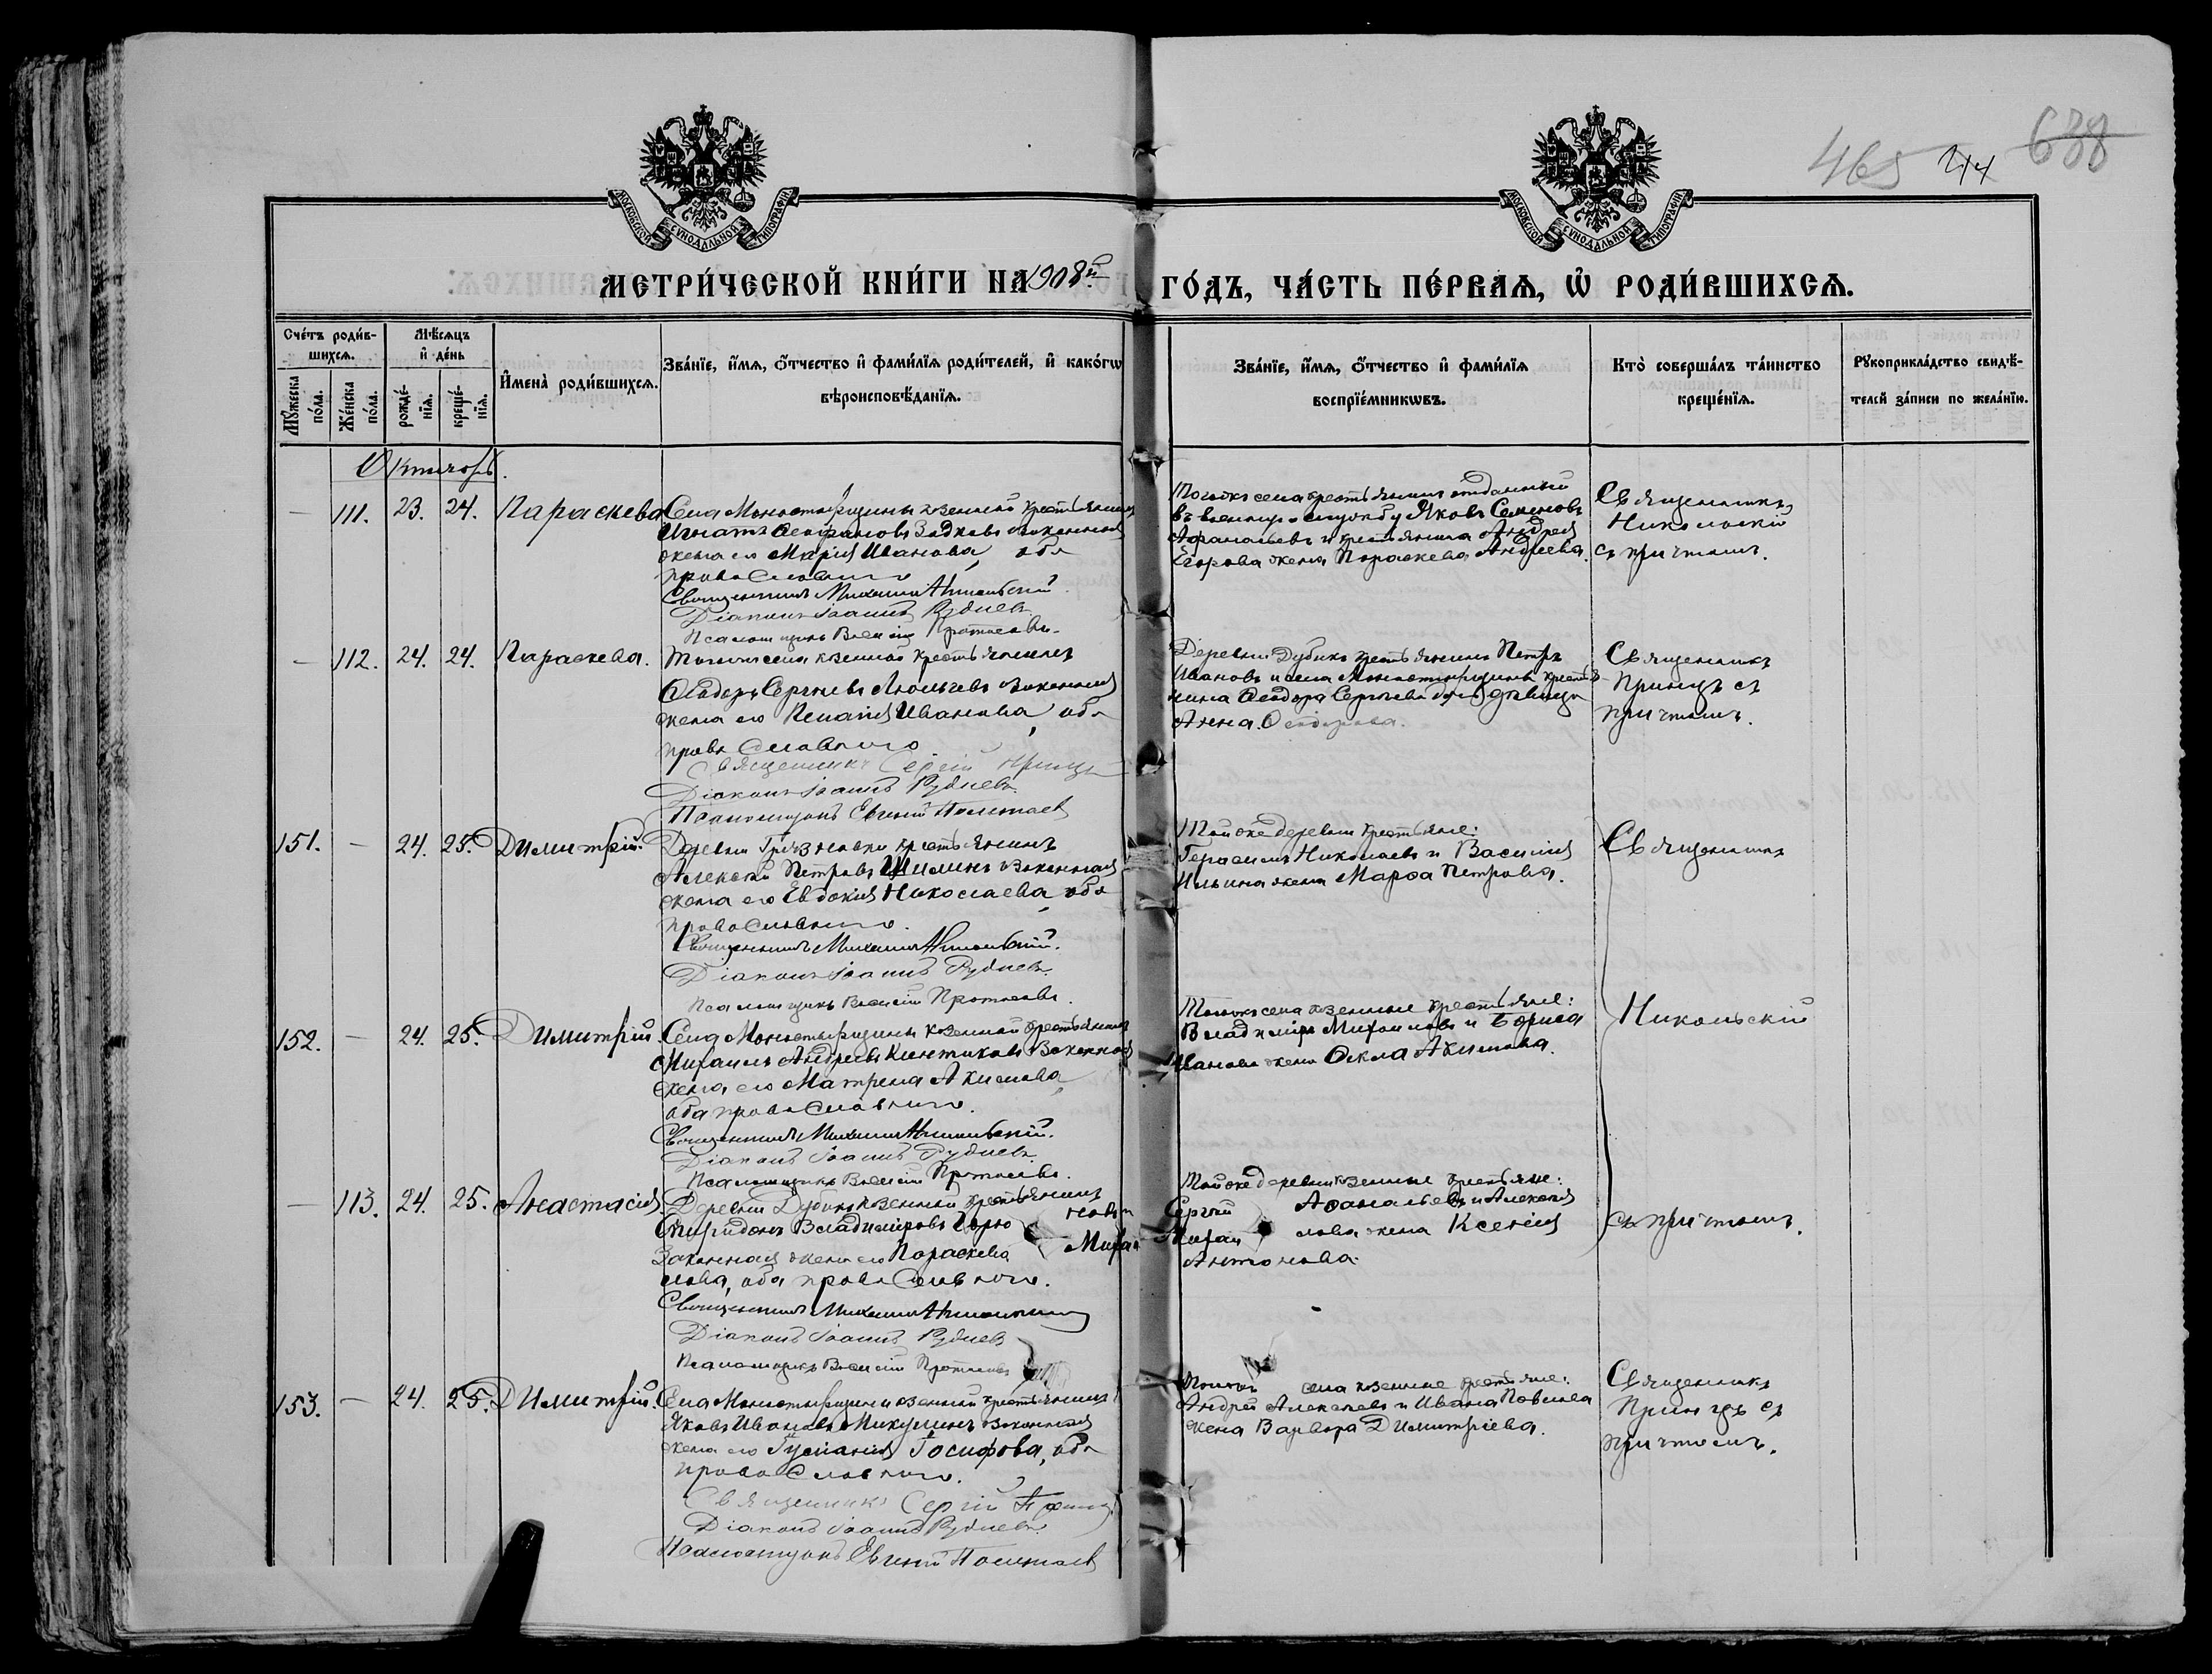 МОСКОВСКОЙ СѴНОДАЛЬНОЙ ТИПОГРАФІИ
МОСКОВСКОЙ СѴНОДАЛЬНОЙ ТИПОГРАФІИ
465 244 638
МЕТРИ́ЧЕСКОЙ КНИ́ГИ НА 1908й ГО́ДЪ, ЧА́СТЬ ПЕ́РВАѦ, Ѽ РОДИ́ВШИХСѦ.
Сче́тъ роди́в-
шихсѧ.
Мꙋ́жеска по́ла.
Же́нска по́ла.
Мѣ́сѧцъ
и҆ де́нь
рожде́-
нїѧ.
креще́-
нїѧ.
И҆мена̀ роди́вшихсѧ.
Зва́нїе, и҆́мѧ, ѻ҆́тчество и҆ фами́лїѧ роди́телей, и҆ како́гѡ
вѣроисповѣ́данїѧ.
Зва́нїе, и҆́мѧ, ѻ҆́тчество и҆ фами́лїѧ
воспрїе́мникѡвъ.
Кто̀ соверша́лъ та́инство
креще́нїѧ.
Рꙋкоприкла́дство свидѣ́-
телей за́писи по жела́нїю.
Октябрь.
— 111. 23. 24. Параскева
Села Монастырщины казенный крестьянинъ
Игнатъ Ѳеофановъ законная
жена его Марія Иванова, оба
православнаго
Священникъ Михаилъ Никольскій
Діаконъ Іоаннъ Рудневъ
Псаломщикъ Василій Протасовъ.
Тогожъ села крестьянинъ отданный
въ военную службу Яковъ Семеновъ
Афанасьевъ и крестьянина Андрея
Егорова жена Параскева Андреева.
Священникъ
Никольскій
съ причтомъ.
— 112. 24. 24. Параскева.
Тогожъ села казенный крестьянинъ
Ѳеодоръ Сергѣевъ законная
жена его Пелагія Иванова, оба
православнаго
Священникъ Сергій Принцъ
Діаконъ Іоаннъ Рудневъ
Псаломщикъ Евгеній Полетаевъ
Деревни Дубикъ крестьянинъ Петръ
Ивановъ и села Монастырщины кресть
нина Ѳеодора Сергѣева дочь дѣвица
Анна Ѳеодорова.
Священникъ
Принцъ съ
причтомъ.
151. — 24. 25. Димитрій.
Деревни Грязновки крестьянинъ
Алексѣй Петровъ Шилинъ законная
жена его Евдокія Николаева, оба
православнаго.
Священникъ Михаилъ Никольскій.
Діаконъ Іоаннъ Рудневъ
Псаломщикъ Василій Протасовъ.
Той же деревни крестьяне:
Герасимъ Николаевъ и Василія
Ильина жена Марѳа Петрова.
Священникъ
152. — 24. 25. Димитрій.
Села Монастырщины казенный крестьянинъ
Михаилъ Андреевъ законная
жена его Матрена Акимова
оба православнаго.
Священникъ Михаилъ Никольскій.
Діаконъ Іоаннъ Рудневъ
Псаломщикъ Василій Протасовъ.
Тогожъ села казенные крестьяне:
Владиміръ Михайловъ и Бориса
Иванова жена Ѳекла Акимова.
Никольскій
— 113. 24. 25. Анастасія
Деревни Дубикъ казенный крестьянинъ
Спиридонъ Владиміровъ
Законная жена его Параскева Михай
лова, оба православнаго.
Священникъ Михаилъ Никольскій
Діаконъ Іоаннъ Рудневъ
Псаломщикъ Василій Протасовъ
Той же деревни казенные крестьяне:
Сергѣй Аѳанасьевъ и Алексѣя
Михай лова жена Ксенія
Антонова.
съ причтомъ.
153. — 24. 25. Димитрій.
Села Монастырщины казенный крестьянинъ
Яковъ Ивановъ Микулинъ законная
жена его Іуліанія Іосифова, оба
православнаго.
Священникъ Сергій Принцъ
Діаконъ Іоаннъ Рудневъ
Псаломщикъ Евгеній Полетаевъ
Тогожъ села казенные крестьяне:
Андрей Алексѣевъ и Ивана Павлова
жена Варвара Димитріева.
Священникъ
Принцъ съ
причтомъ.